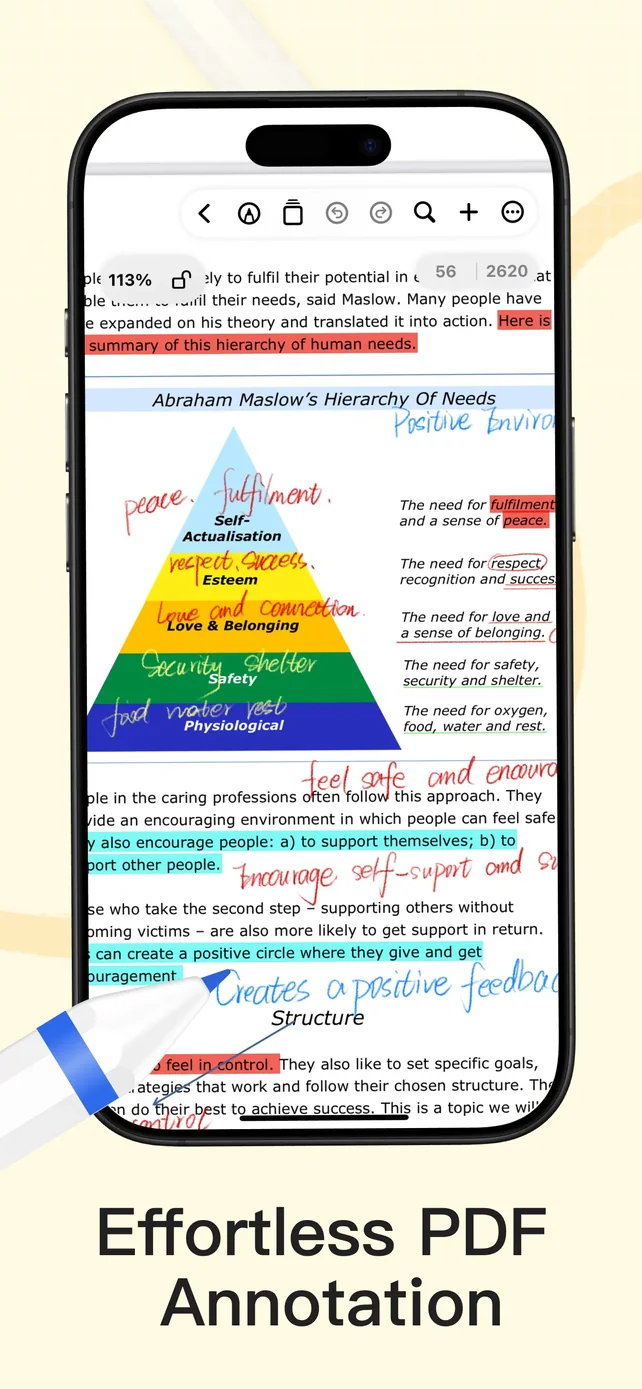 113%
56 2620
ely to fulfil their potential in
their needs, said Maslow. Many people have
expanded on his theory and translated it into action. Here is
summary of this hierarchy of human needs.
Abraham Maslow's Hierarchy Of Needs
Positive Enviro
peace. fulfilment.
Self-
Actualisation
The need for fulfilment
and a sense of peace.
respect. Success.
Esteem
The need for respect,
recognition and succes
Love and connection.
Love & Belonging
The need for love and
a sense of belonging.
Security shelter
Safety
The need for safety,
security and shelter.
food water rest
Physiological
The need for oxygen,
food, water and rest.
feel safe and encoura
ple in the caring professions often follow this approach. They
vide an encouraging environment in which people can feel safe
y also encourage people: a) to support themselves; b) to
port other people.
Encourage self-suport and su
se who take the second step – supporting others without
oming victims – are also more likely to get support in return.
s can create a positive circle where they give and get
ouragement
Creates a positive feedbac
Structure
o feel in control. They also like to set specific goals,
rategies that work and follow their chosen structure. The
en do their best to achieve success. This is a topic we wil
control
Effortless PDF
Annotation